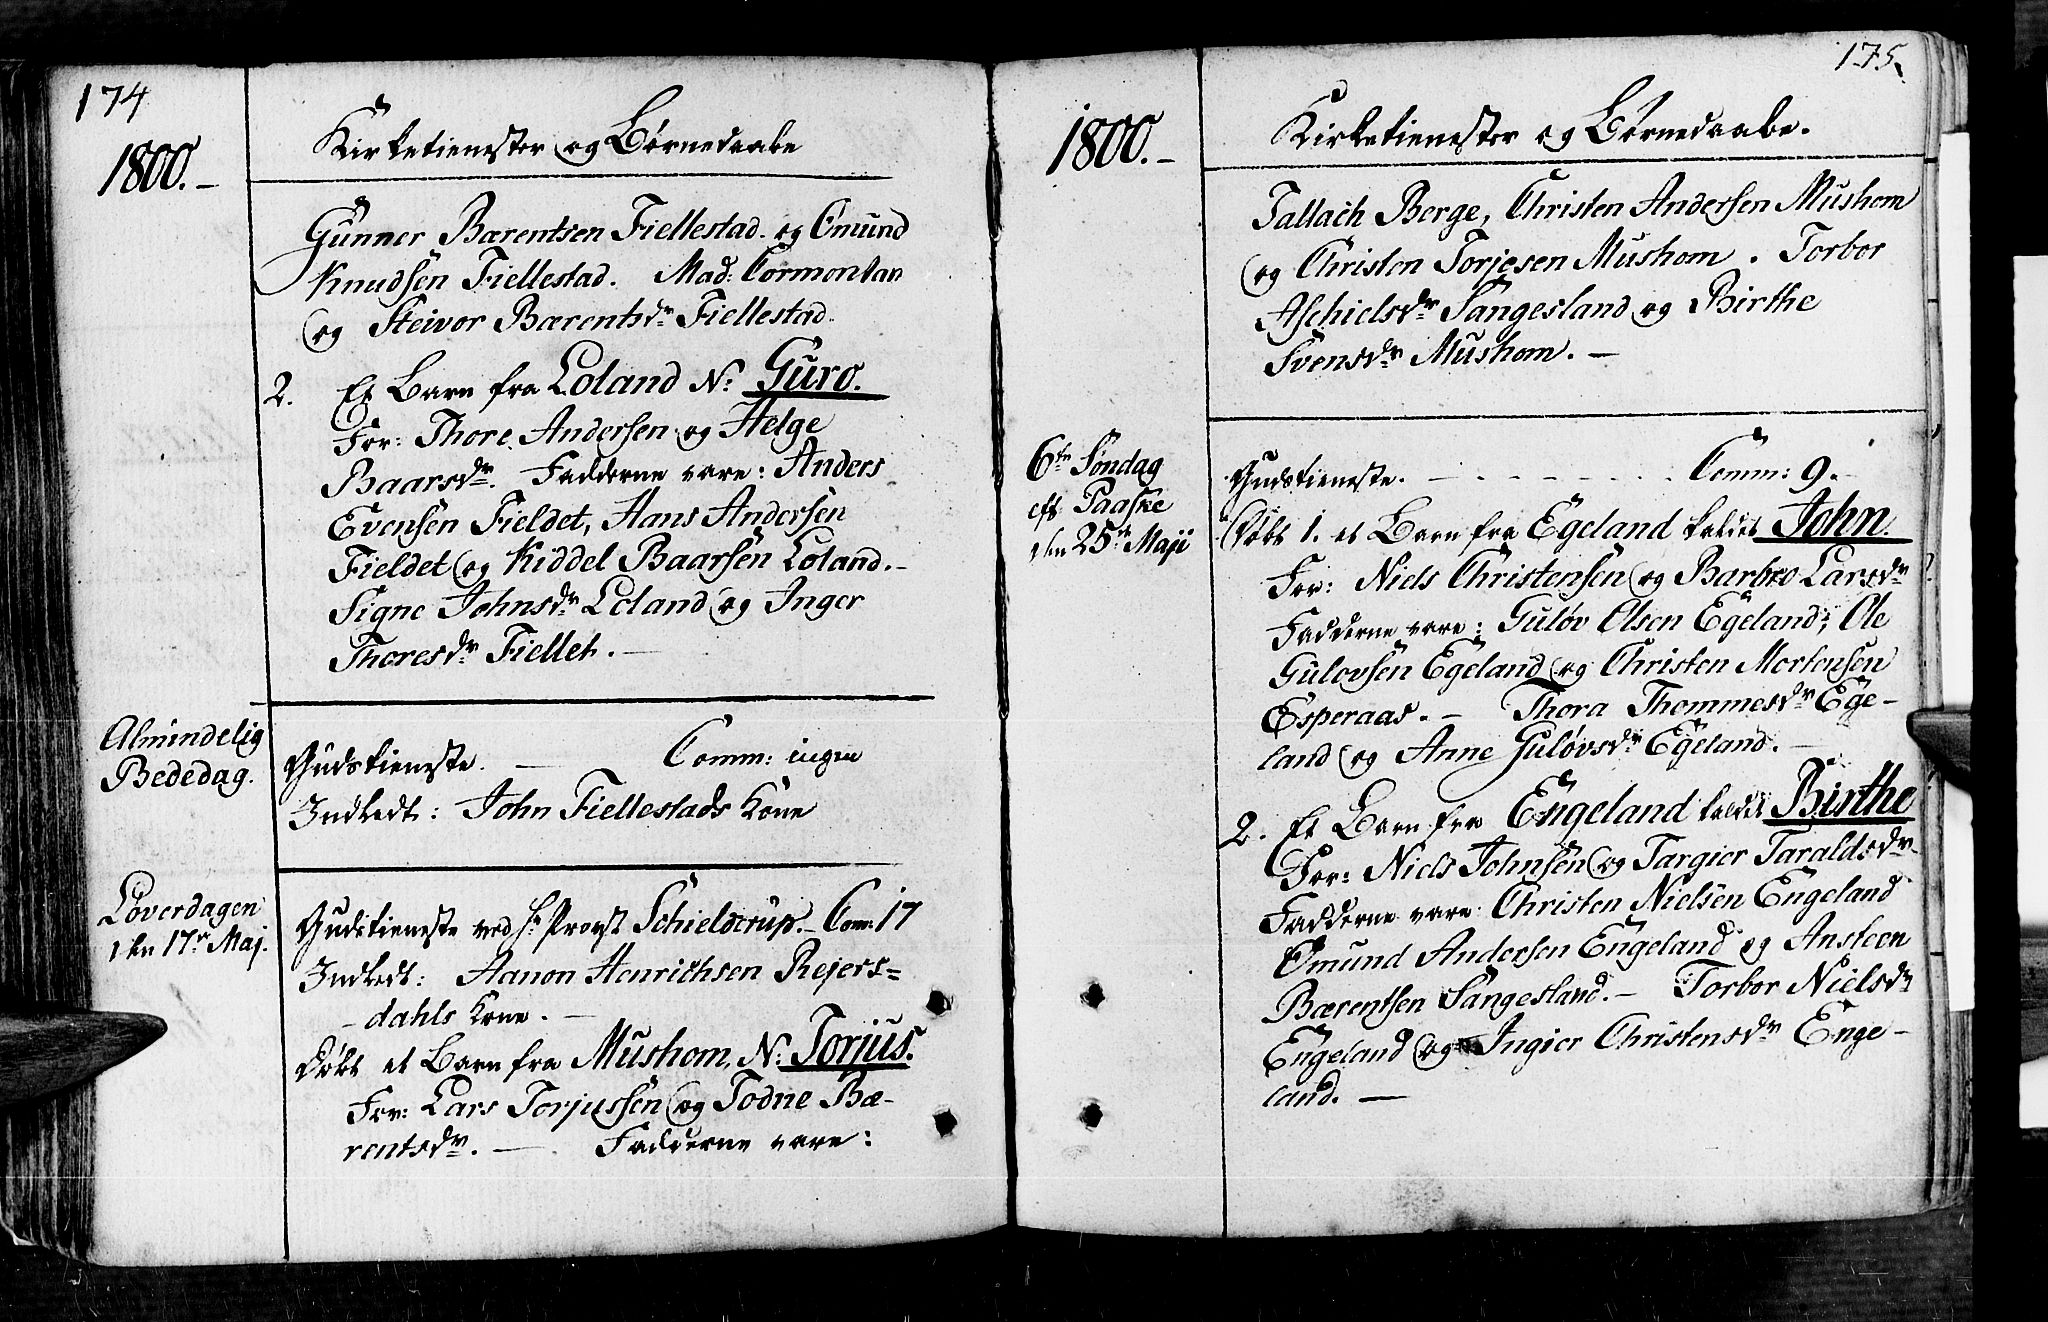 174
1800.–
Kirketienester og Børnedaabe
Gunner Bærentsen Fiellestad. og Omund
Knudsen Fiellestad. Mad: Cormontan
og Steivor Bærentsdr Fiellestad.
2. Et Barn fra Loland N: Guro.
For: Thore Andersen og Helge
Baarsdr. Fadderne vare: Anders
Evensen Fieldet, Hans Andersen
Fieldet og Kiddel Baarsen Loland.–
Signe Johnsdr Loland og Inger
Thoresdr Fiellet.–
Almindelig
Bededag.
Gudstieneste. – Comm: ingen
Indledt: John Fiellestads Kone
Løverdagen
den 17de Maj.
Gudstieneste ved Hr Provst Schielderup.– Com: 17
Indledt: Aanon Henrichsen Rejers=
– dahls Kone. –
Døbt et Barn fra Mushom, N: Torjus.
For: Lars Torjussen og Todne Bæ–
rentsdr. –. Fadderne vare:
175
1800.–
Kirketienester og Børnedaabe.
Tallach Berge, Christen Andersen Mushom
og Christen Torjesen Mushom. Torbor
Aschielsdr Sangesland og Birthe
Svensdr Mushom. –
6te Søndag
eft Paaske
den 25de Maji
Gudstieneste. – – – – – – – – Comm: 9.–
Døbt 1. et Barn fra Egeland kaldet John.
For: Niels Christensen og Barbro Larsdr
Fadderne vare: Guløv Olsen Egeland, Ole
Guløvsen Egeland og Christen Mortensen
Esperaas. – Thora Thommesdr Ege–
land og Anne Guløvsdr Egeland. –
2. Et Barn fra Engeland kaldet Birthe
For: Niels Johnsen og Targier Taraldsdr–
Fadderne vare: Christen Nielsen Engeland
Omund Andersen Engeland og Ansteen
Bærentsen Sangesland.– Torbor Nielsdr
Engeland og Ingier Christensdr Enge–
land. –